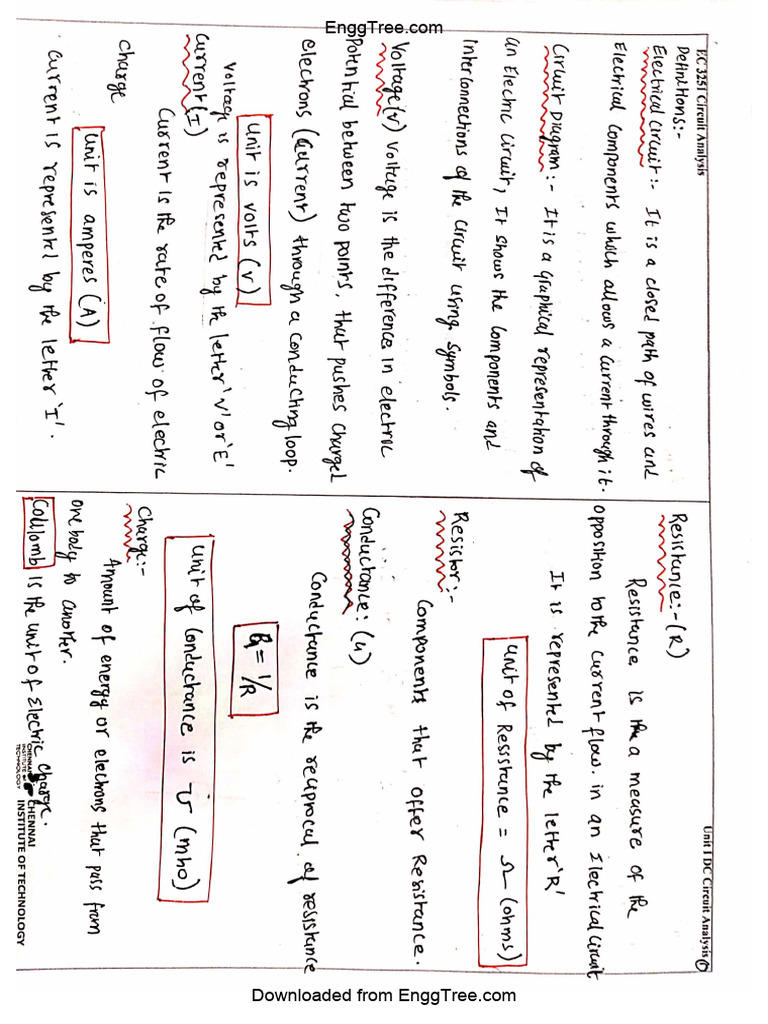 EnggTree.com
EC 3251 Circuit Analysis
Unit I DC Circuit Analysis ①
Definitions:-
Electrical circuit:- It is a closed path of wires and
Electrical components which allows a current through it.
Circuit Diagram:- It is a graphical representation of
an Electric circuit, It shows the components and
interconnections of the circuit using symbols.
Voltage(V) Voltage is the difference in electric
potential between two points, that pushes charged
electrons (current) through a conducting loop.
unit is volts (V)
Voltage is represented by the letter 'V' or 'E'
Current(I)
Current is the rate of flow of electric
charge
unit is amperes (A)
current is represented by the letter 'I'.
Resistance:- (R)
Resistance is the a measure of the
opposition to the current flow. in an Electrical circuit
It is represented by the letter 'R'
unit of Resistance = Ω (ohms)
Resistor:-
Components that offer Resistance.
Conductance: (G)
Conductance is the reciprocal of resistance
G = 1/R
unit of Conductance is ℧ (mho)
Charge:-
Amount of energy or electrons that pass from
one body to another.
Coulomb is the unit of Electric charge.
CHENNAI
INSTITUTE OF
TECHNOLOGY
CHENNAI
INSTITUTE OF TECHNOLOGY
Downloaded from EnggTree.com